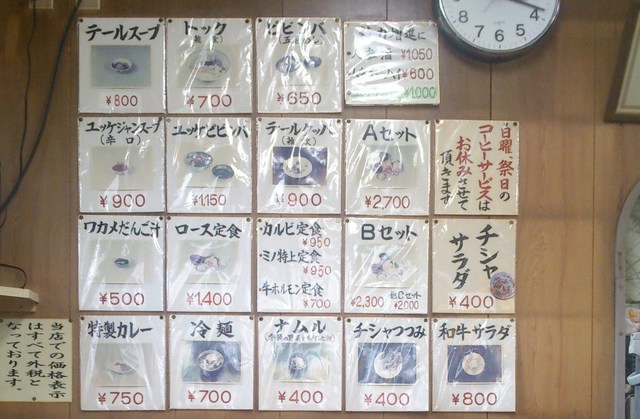 テールスープ
¥800
トック
¥700
ビビンバ
¥650
¥1050
¥600
¥1,000
ユッケジャンスープ
(辛口)
¥900
ユッケビビンバ
¥1,150
テールクッパ
¥900
Aセット
¥2,700
日曜、祭日の
コーヒーサービスは
お休みさせて
頂きます
ワカメだんご汁
¥500
ロース定食
¥1,400
・カルビ定食
¥950
・ミノ特上定食
¥950
・牛ホルモン定食
¥700
Bセット
¥2,300
Cセット
¥2000
チシャ
サラダ
¥400
当店での価格表示
はすべて外税と
なっております。
特製カレー
¥750
冷麺
¥700
ナムル
¥400
チシャつつみ
¥400
和牛サラダ
¥800
3
4
5
6
7
8